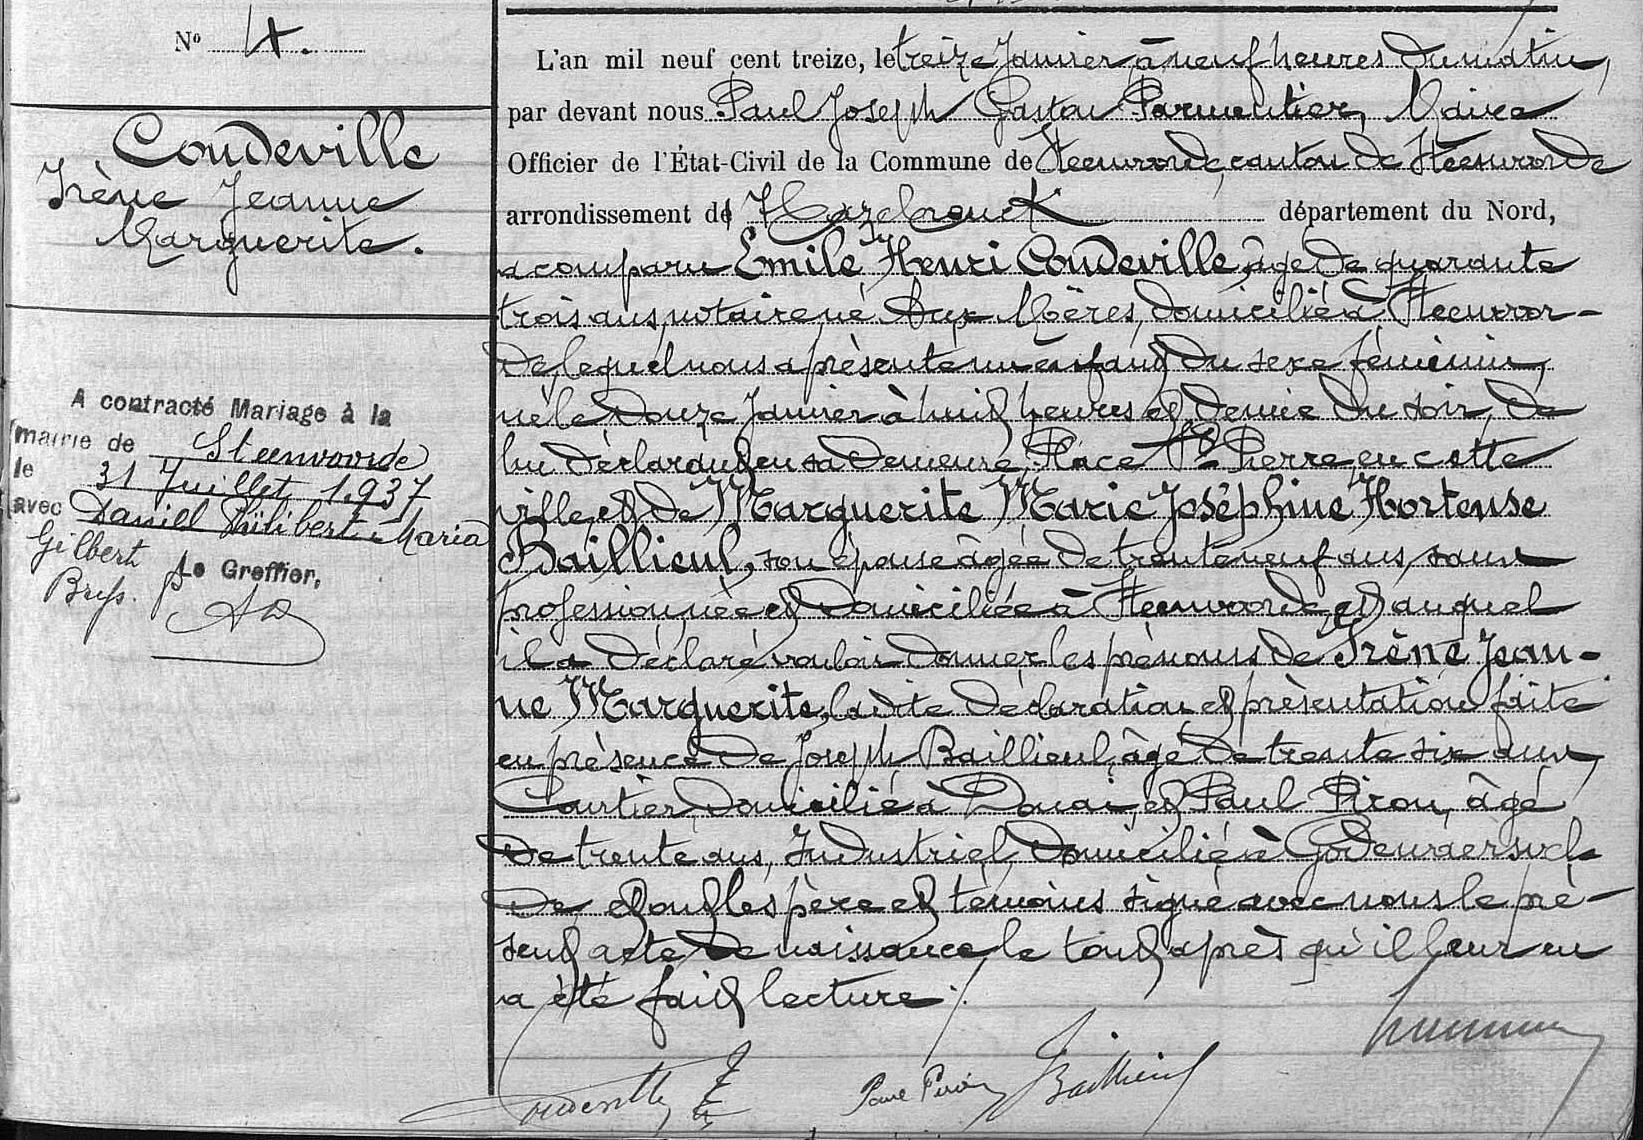 Nº 4.
Coudeville
Irène Jeanne
Marguerite.
A contracté Mariage à la
mairie de Steenvoorde
le 31 Juillet 1937
avec Daniel Philibert Maria
Gilbert
Le Greffier,
L'an mil neuf cent treize, le treize Janvier à neuf heures du matin,
par devant nous Paul Joseph Gaston Parmentier, Maire
Officier de l'État-Civil de la Commune de Steenvoorde, canton de Steenvoorde
arrondissement d' Hazebrouck département du Nord,
a comparu Emile Henri Coudeville, âgé de quarante
trois ans, notaire né aux Moëres, domicilié à Steenvoor-
de, lequel nous a présenté un enfant du sexe féminin,
né le douze Janvier à huit heures et demie du soir, de
lui déclarant en sa demeure, Place St Pierre, en cette
ville, et de Marguerite Marie Joséphine Hortense
Baillieul, son épouse âgée de trente neuf ans, sans
profession, née et domiciliée à Steenvoorde, et auquel
il a déclaré vouloir donner les prénoms de Irène Jean-
ne Marguerite, ladite déclaration et présentation faite
en présence de Joseph Baillieul, âgé de trente six ans,
Courtier, domicilié à Douai, et Paul Piron, âgé
de trente ans, Industriel, domicilié à Godewaersvel-
de et ont les père et témoins signé avec nous le pré-
sent acte de naissance, le tout après qu'il leur en
a été fait lecture.
Coudeville
Paul Piron
Baillieul